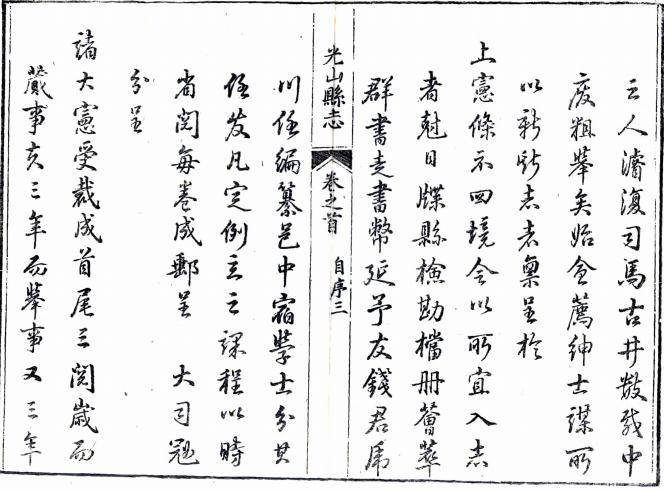 之人濬復司馬古井數載中
废粗舉矣始僉薦紳士謀所
以新斯志者禀呈於
上憲條示四境令以所宜入志
者尅日牒縣檢勘檔册薈萃
群書走書幣延予友錢君席
光山縣志
卷之首
自序三
川任編纂邑中宿學士分其
任发凡定例立之課程以時
省閱每卷成郵呈 大司冠
分呈
諸大憲受裁成首尾三閱歲而
蕆事亥三年而舉事又三年